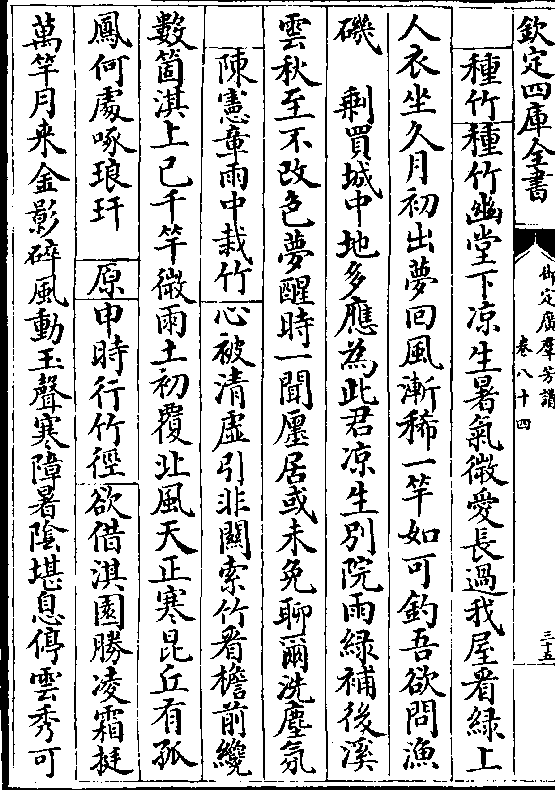 欽定四庫全書
御定廣羣芳譜
卷八十四
三十五
種竹種竹幽堂下凉生暑氣微愛長過我屋看緑上
人衣坐久月初出夢回風漸稀一竿如可釣吾欲問漁
磯　剩買城中地多應為此君凉生別院雨緑補後溪
雲秋至不改色夢醒時一聞㕓居或未免聊爾洗塵氛
陳憲章雨中栽竹心被清虚引非關索竹看檐前纔
數箇淇上已千竿微雨土初覆北風天正寒昆丘有孤
鳳何處啄琅玕　原申時行竹徑欲借淇園勝凌霜挺
萬竿月来金影碎風動玉聲寒障暑陰堪息停雲秀可